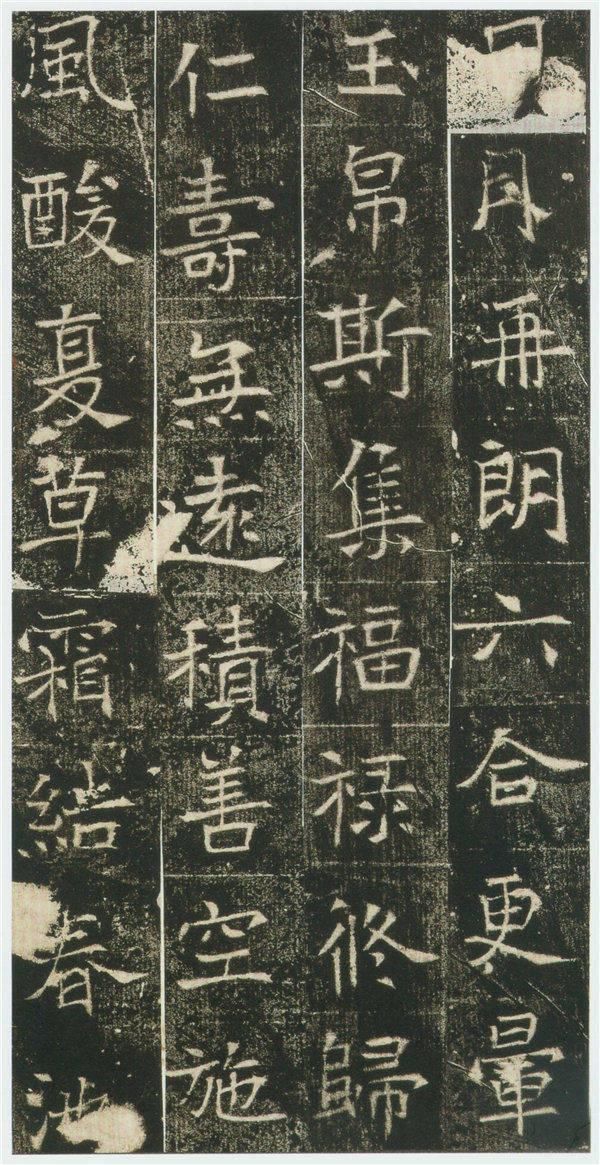 月再朗六合更暈
玉帛斯集福禄修歸
仁壽無遠積善空施
風酸夏草霜結春池